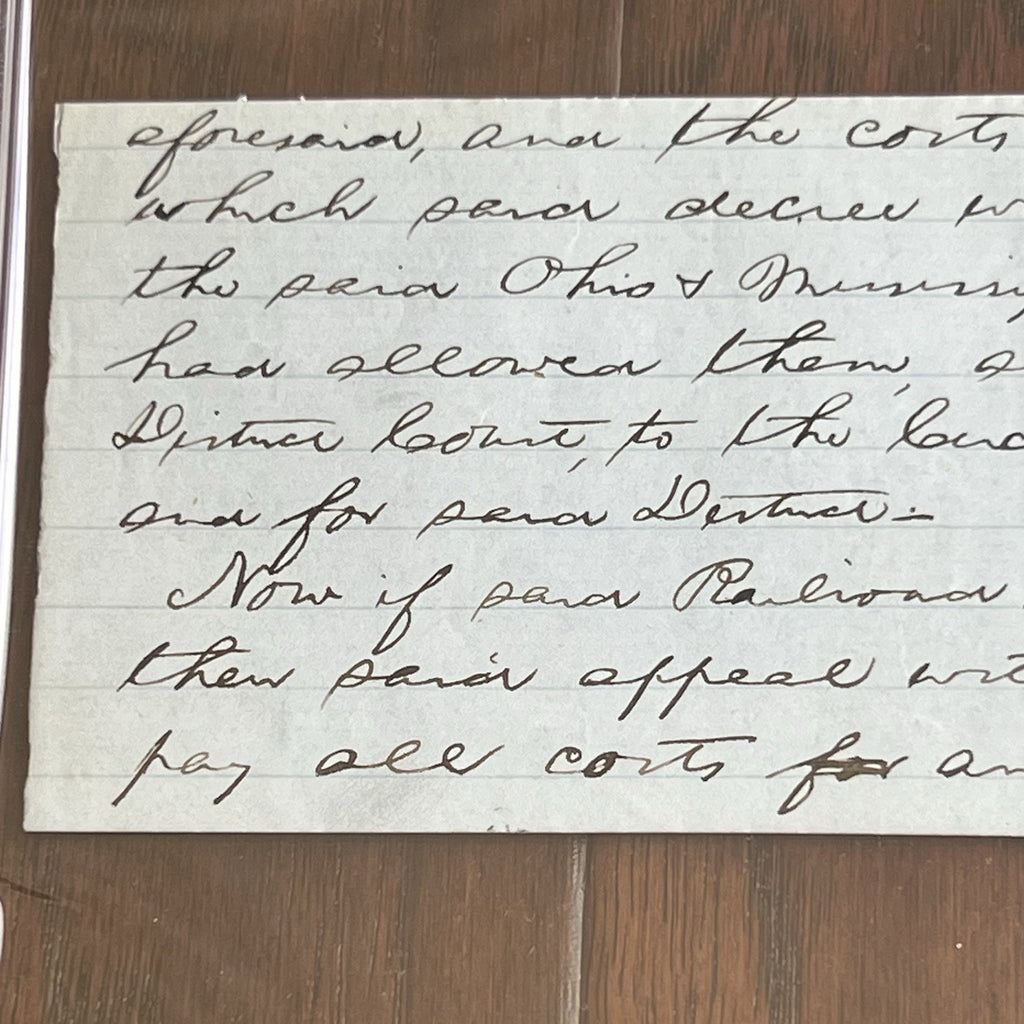 aforesaid, and the costs
which said decree w
the said Ohio & Mississip
had allowed them, a
District Court, to the
and for said District -
Now if said Railroad
then said appeal wit
pay all costs for an